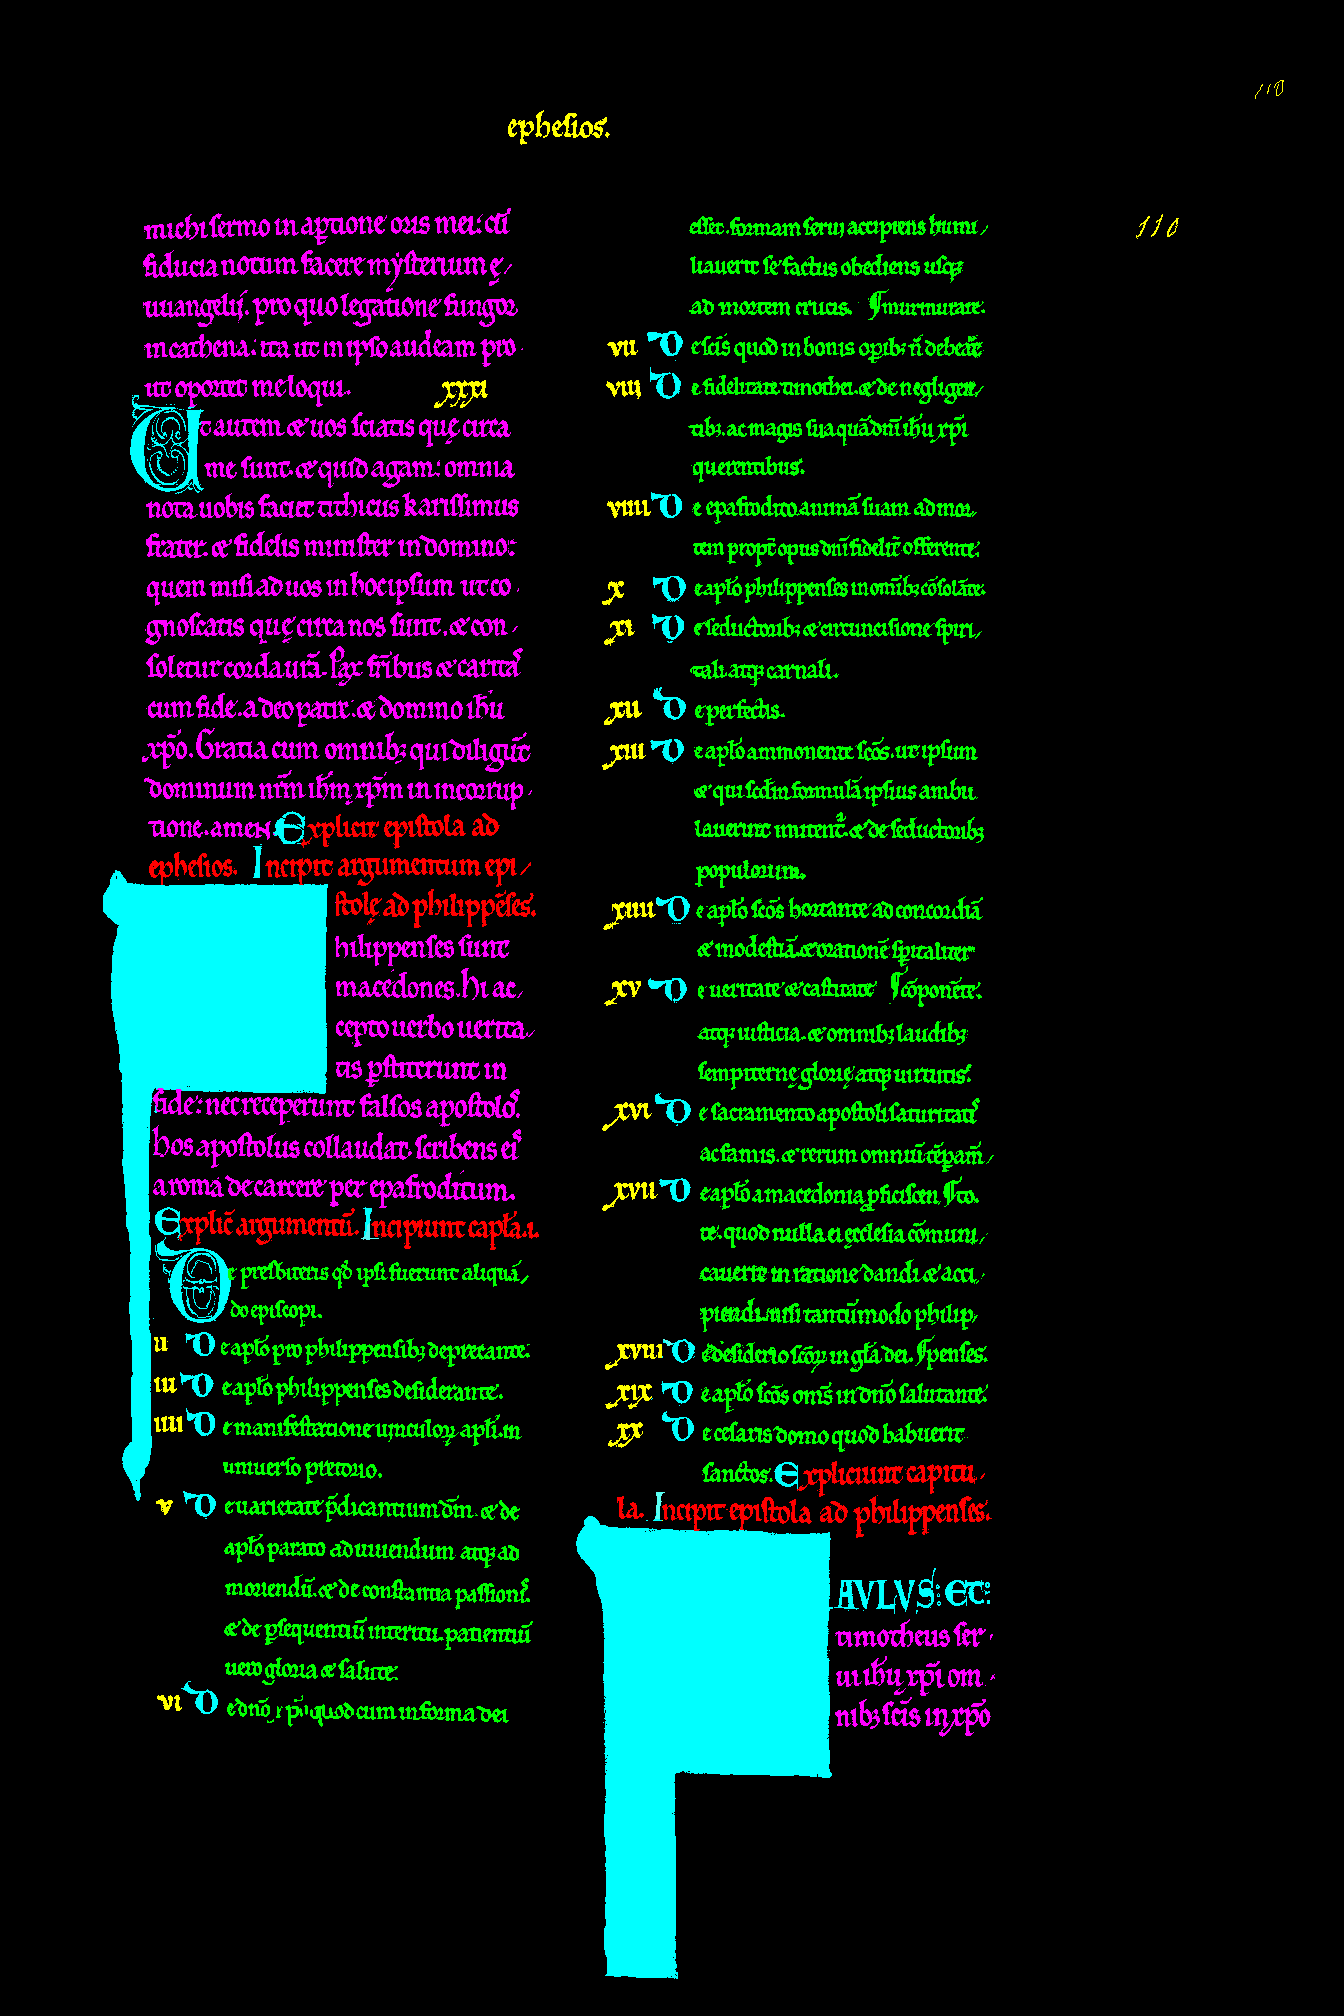 110
ephesios.
110
michi sermo in aptione oris mei: cū
fiducia notum facere mẏsterium ę
uuangelij. pro quo legatione fungor
in cathena: ita ut in ipso audeam pro
ut oportet me loqui. xxxi
Ut autem & uos sciatis quę circa
me sunt & quid agam: omnia
nota uobis faciet tithicus karissimus
frater. & fidelis minister in domino:
quem misi ad uos in hoc ipsum ut co
gnoscatis quę circa nos sunt. & con
soletur corda urā. Pax frībus & caritas
cum fide. a deo patre. & domino ihū
xpō. Gratia cum omnib; qui diligūt
dominum nrm̄ ihm̄ xpm̄ in incorrup
tione. amen. Explicit epistola ad
ephesios. Incipit argumentum epi
stolę ad philippēses.
hilippenses sunt
macedones. hi ac
cepto uerbo uerita
tis pstiterunt in
fide: nec receperunt falsos apostolos.
hos apostolus collaudat. scribens eis
a roma de carcere per epafroditum.
Explic̄ argumentū. Incipiunt capl̄a. i.
De presbiteris qd̄ ipsi fuerunt aliquā
do episcopi.
ii De apl̄o pro philippensib; deprecante.
iii De apl̄o philippenses desiderante.
iiii De manifestatione uinculoꝝ apl̄i. in
uniuerso pretorio.
v De uarietate p̄dicantium dm̄. & de
apl̄o parato ad uiuendum atq; ad
moriendū. & de constantia passionis.
& de psequentiū interitu. patientiū
uero gloria & salute.
vi De dnō xpō quod cum in forma dei
esset. formam serui accipiens humi
liauerit se factus obediens usq;
ad mortem crucis. murmurare.
vii De scīs quod in bonis opib; n̄ debeant
viii De fidelitate timothei. & de negligen
tib;. ac magis sua quā dnī ihū xpī
querentibus.
viiii De epafrodito animā suam ad mor
tem propt̄ opus dnī fidelit̄ offerente.
x De apl̄o philippenses in omīb; cōsolāte.
xi De seductorib; & circuncisione spiri
tali atq; carnali.
xii De perfectis.
xiii De apl̄o ammonente scōs. ut ipsum
& qui scdm̄ formulā ipsius ambu
lauerint imitent̄. & de seductorib;
populorum.
xiiii De apl̄o scōs hortante ad concordiā
& modestiā. & orationē spitaliter
xv De ueritate & castitate cōponēte.
atq; iusticia. & omnib; laudib;
sempiternę glorię atq; uirtutis.
xvi De sacramento apostoli saturitatis
ac famis. & rerum omnuī tēpam̄
xvii De apl̄o a macedonia pficiscen to.
te. quod nulla ei ęcclesia cōmuni
cauerit in ratione dandi & acci
piendi. nisi tantūmodo philip
xviii De desiderio scōꝝ in glā dei. penses.
xix De apl̄o scōs omīs in dnō salutante.
xx De cesaris domo quod habuerit
sanctos. Expliciunt capitu
la. Incipit epistola ad philippenses.
AVLVS: ET:
timotheus ser
ui ihū xpī om
nib; scīs in xpō